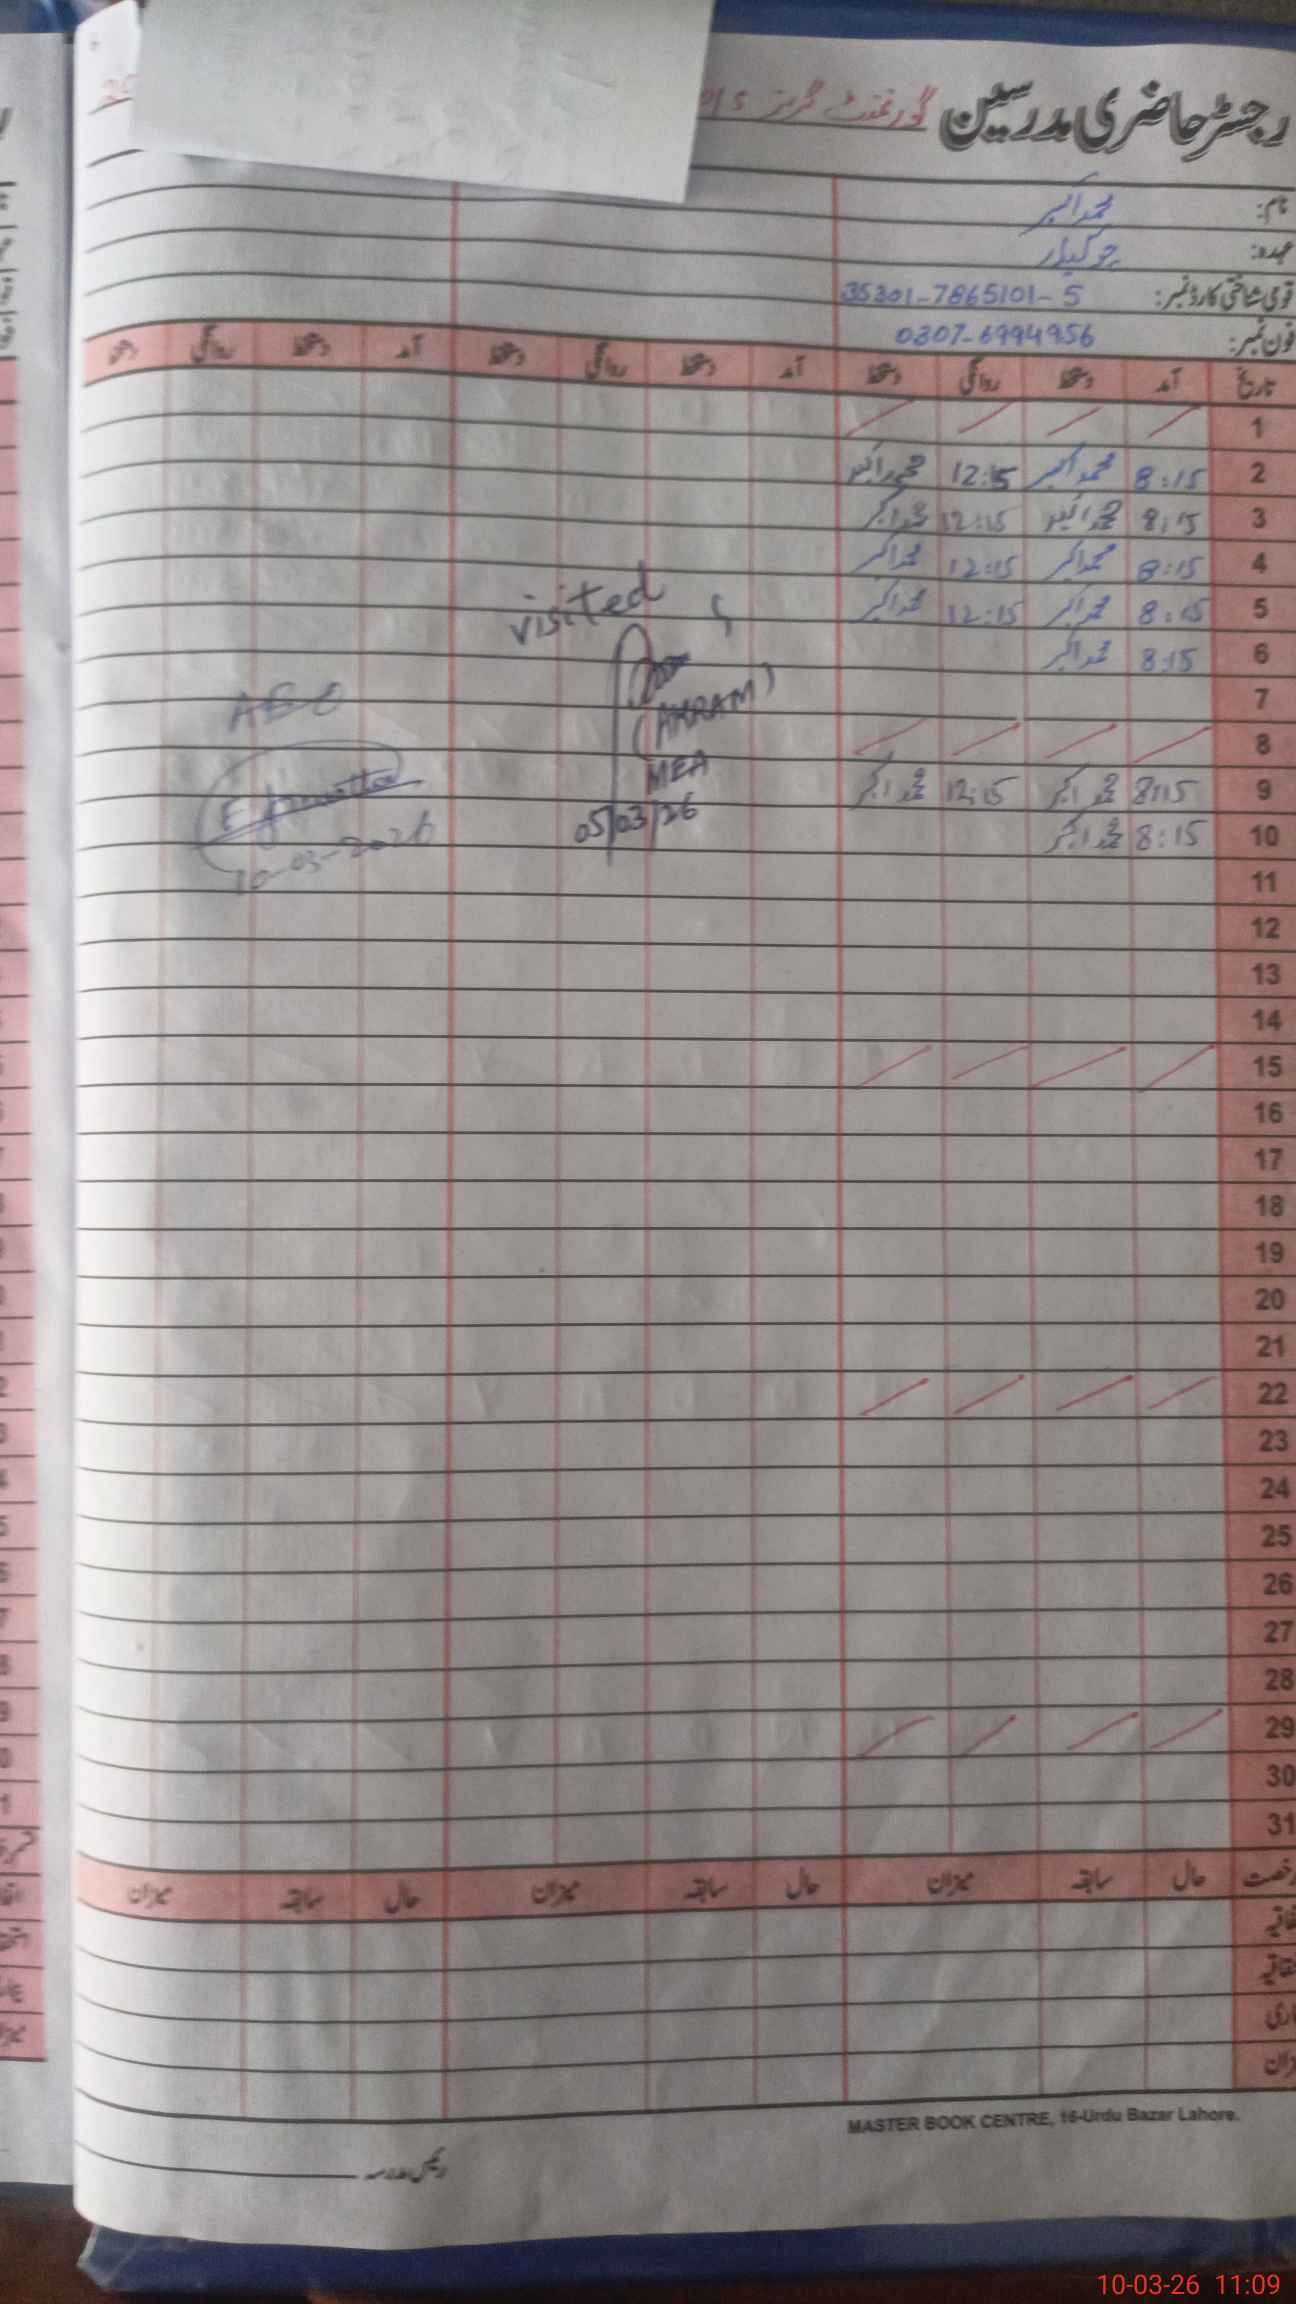 رجسٹر حاضری مدرسین گورنمنٹ گرلز
نام: محمد اکبر
عہدہ: چوکیدار
قومی شناختی کارڈ نمبر: 35301-7865101-5
فون نمبر: 0307-6994956
تاریخ آمد دستخط روانگی دستخط آمد دستخط روانگی دستخط آمد دستخط روانگی دستخط
1
2 8:15 محمد اکبر 12:15 محمد اکبر
3 8:15 محمد اکبر 12:15 محمد اکبر
4 8:15 محمد اکبر 12:15 محمد اکبر
5 8:15 محمد اکبر 12:15 محمد اکبر
visited
6 8:15 محمد اکبر
7
(AKRAM)
AEO
8
MEA
9 8:15 محمد اکبر 12:15 محمد اکبر
05/03/26
10 8:15 محمد اکبر
10-03-2026
11
12
13
14
15
16
17
18
19
20
21
22
23
24
25
26
27
28
29
30
31
رخصت حال سابقہ میزان حال سابقہ میزان حال سابقہ میزان
MASTER BOOK CENTRE, 16-Urdu Bazar Lahore.
رئیس مدرسہ
10-03-26 11:09